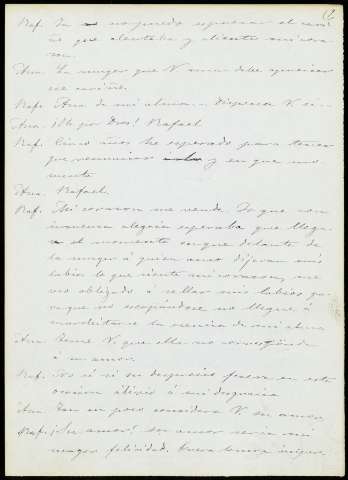 Raf. Yo no puedo expresar el cari-
ño que alentaba y aliento mi cora-
zon.
Ana. La muger que V. ama debe apreciar
ese cariño.
Raf. Ana de mi alma... Dispense V. si..
Ana. ¡Oh por Dios! Rafael
Raf. Cinco años he esperado para tener
que renunciar y en que mo-
mento
Ana. Rafael.
Raf. Mi corazon me vende. Yo que con
inmensa alegria esperaba que llega-
el momento en que delante de
la muger á quien amo dijeran mis
labios lo que siente mi corazon, me
veo obligado á sellar mis labios pa-
ra que no escapándose no llegue á
marchitarse la esencia de mi alma
Ana. Teme V. que ella no corresponda
á su amor.
Raf. No si mi desgracia fuera en esta
ocasion alivio á mi desgracia
Ana. Tan en poco considera V. su amor.
Raf. ¡Su amor! su amor seria mi
mayor felicidad.